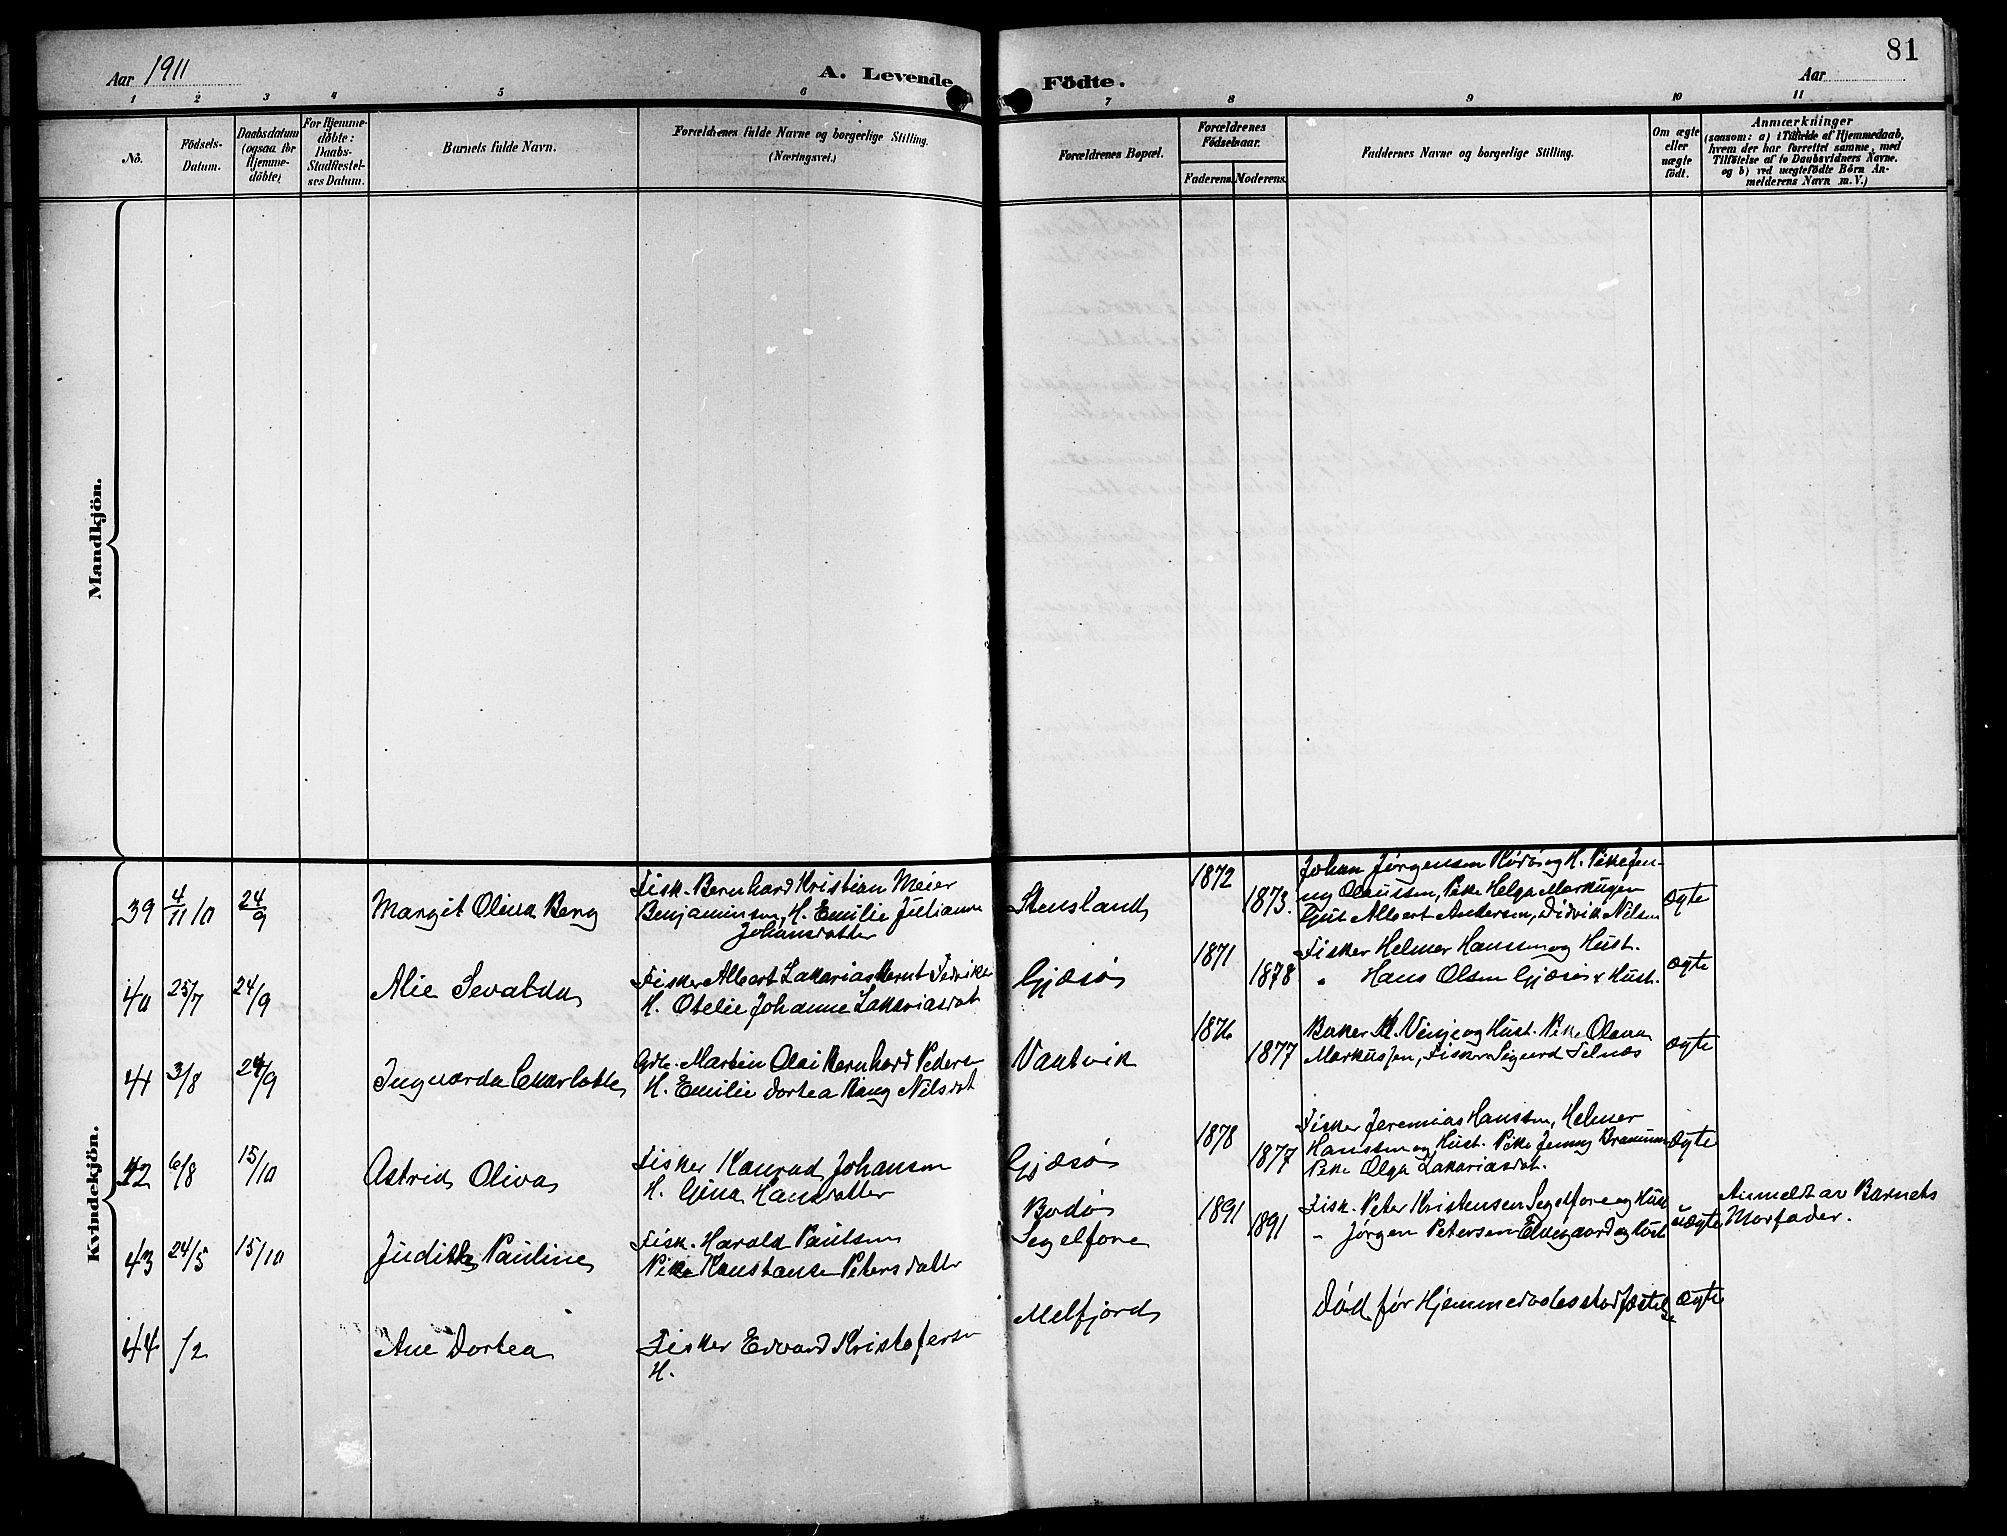 Aar 1911
A. Levende
Födte.
Aar
81
1
2
3
4
5
6
7
8
9
10
11
No.
Födsels-
Datum.
Daabsdatum
(ogsaa for
Hjemme-
döbte)
For Hjemme-
döbte:
Daabs-
Stadfæstel-
ses Datum.
Barnets fulde Navn.
Forældrenes fulde Navne og borgerlige Stilling.
(Næringsvei.)
Forældrenes Bopæl.
Forældrenes
Födselsaar.
Faderens.
Moderens.
Faddernes Navne og borgerlige Stilling.
Om ægte
eller
uægte
födt.
Anmærkninger
(saasom: a) i Tilfælde af Hjemmedaab,
hvem der har forrettet samme, med
Tilföielse af to Daabsvidners Navne.
og b) ved uægtefödte Börn An-
melderens Navn m. V.)
Mandkjön.
Kvindekjön.
39 4/11 10 24/9
Margit Olina Berg
Fisk. Bernhard Kristian Meier
Benjaminsen, H. Emilie Julianne
Johansdatter
Stensland
1872
1873.
Johan Jørgensen Rødø og H. Pike Jen-
ny Olaussen, Pike Helga Markusen
Gut Albert Andersen, Didvik Nilsen
ægte
40 25/7 24/9
Alie Sevalda
Fisker Albert Zakarias Bernt Fedrikse
H. Otelie Johanne Zakariasdat
Gjæsø
1871
1878
Fisker Helmer Hanssen og Hust.
" Hans Olsen Gjæsø & Hust.
ægte
41 3/8 24/9
Ingvarda Charlotte
Grdb. Martin Olai Bernhard Peders
H. Emilie Dortea Bang Nilsdat
Vaatvik
1876
1877
Baker M. Vinje og Hust. Pike Olava
Markussen, Fisker Sigurd Selnæs
ægte
42 6/8 15/10
Astrid Oliva
Fisker Konrad Johansen
H. Gina Hansdatter
Gjæsø
1878
1877
Fisker Jeremias Hanssen, Helmer
Hanssen og Hust. Pike Jenny
Pike Olga Zakariasdat.
ægte
43 24/5 15/10
Judith Pauline
Fisk. Harald Paulsen
Pike Konstanse Petersdattr
Bodø
Segelfore
1891
1891
Fisk. Peter Kristensen Segelfore og Hust
" Jørgen Petersen Elvegaard og Hust
uægte
Anmeldt av Barnets
Morfader.
44 /2
Ane Dortea
Fisker Edvard Kristofersen
H.
Melfjord
Død før Hjemmedaabsstadfæstelse
ægte